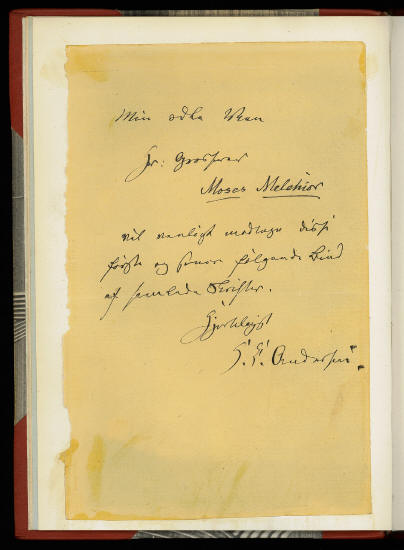 Min ædle Ven
Hr: Grosserer
Moses Melchior
vil venligt modtage disse
første og senere følgende Bind
af samlede Skrifter.
Hjerteligst
H. C. Andersen